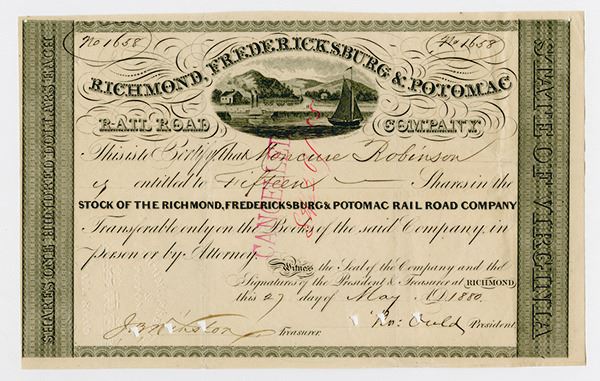 No 1658
No 1658
RICHMOND, FREDERICKSBURG & POTOMAC
RAIL ROAD COMPANY
This is to Certify that Moncure Robinson
is entitled to Fifteen Shares in the
STOCK OF THE RICHMOND, FREDERICKSBURG & POTOMAC RAIL ROAD COMPANY
Transferable only on the Books of the said Company, in
person or by Attorney.
Witness the Seal of the Company and the
Signatures of the President & Treasurer at RICHMOND,
this 27 day of May AD 1880.
J. B. Winston Treasurer.
Ro: Ould President
SHARES ONE HUNDRED DOLLARS EACH
STATE OF VIRGINIA
CANCELLED